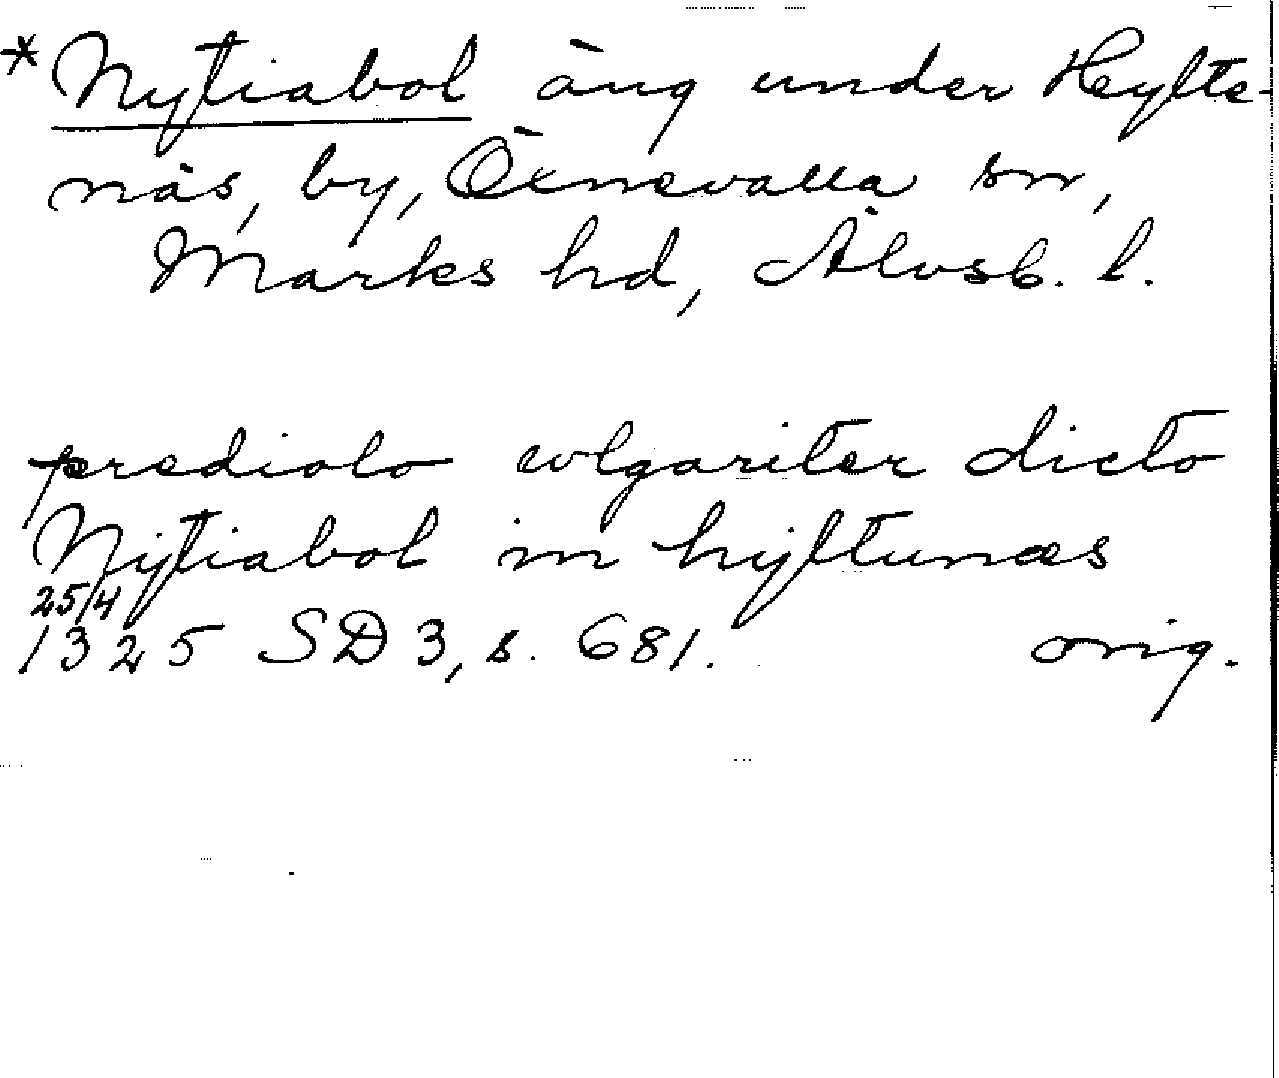 * Nytiabol äng under Hylte-
näs, by, Öxnevalla sn,
Marks hd, Älvsb. l.
prediolo wlgariter dicto
Nÿtiabol in hÿltunæs
25/4
1325 SD 3, s. 681. orig.